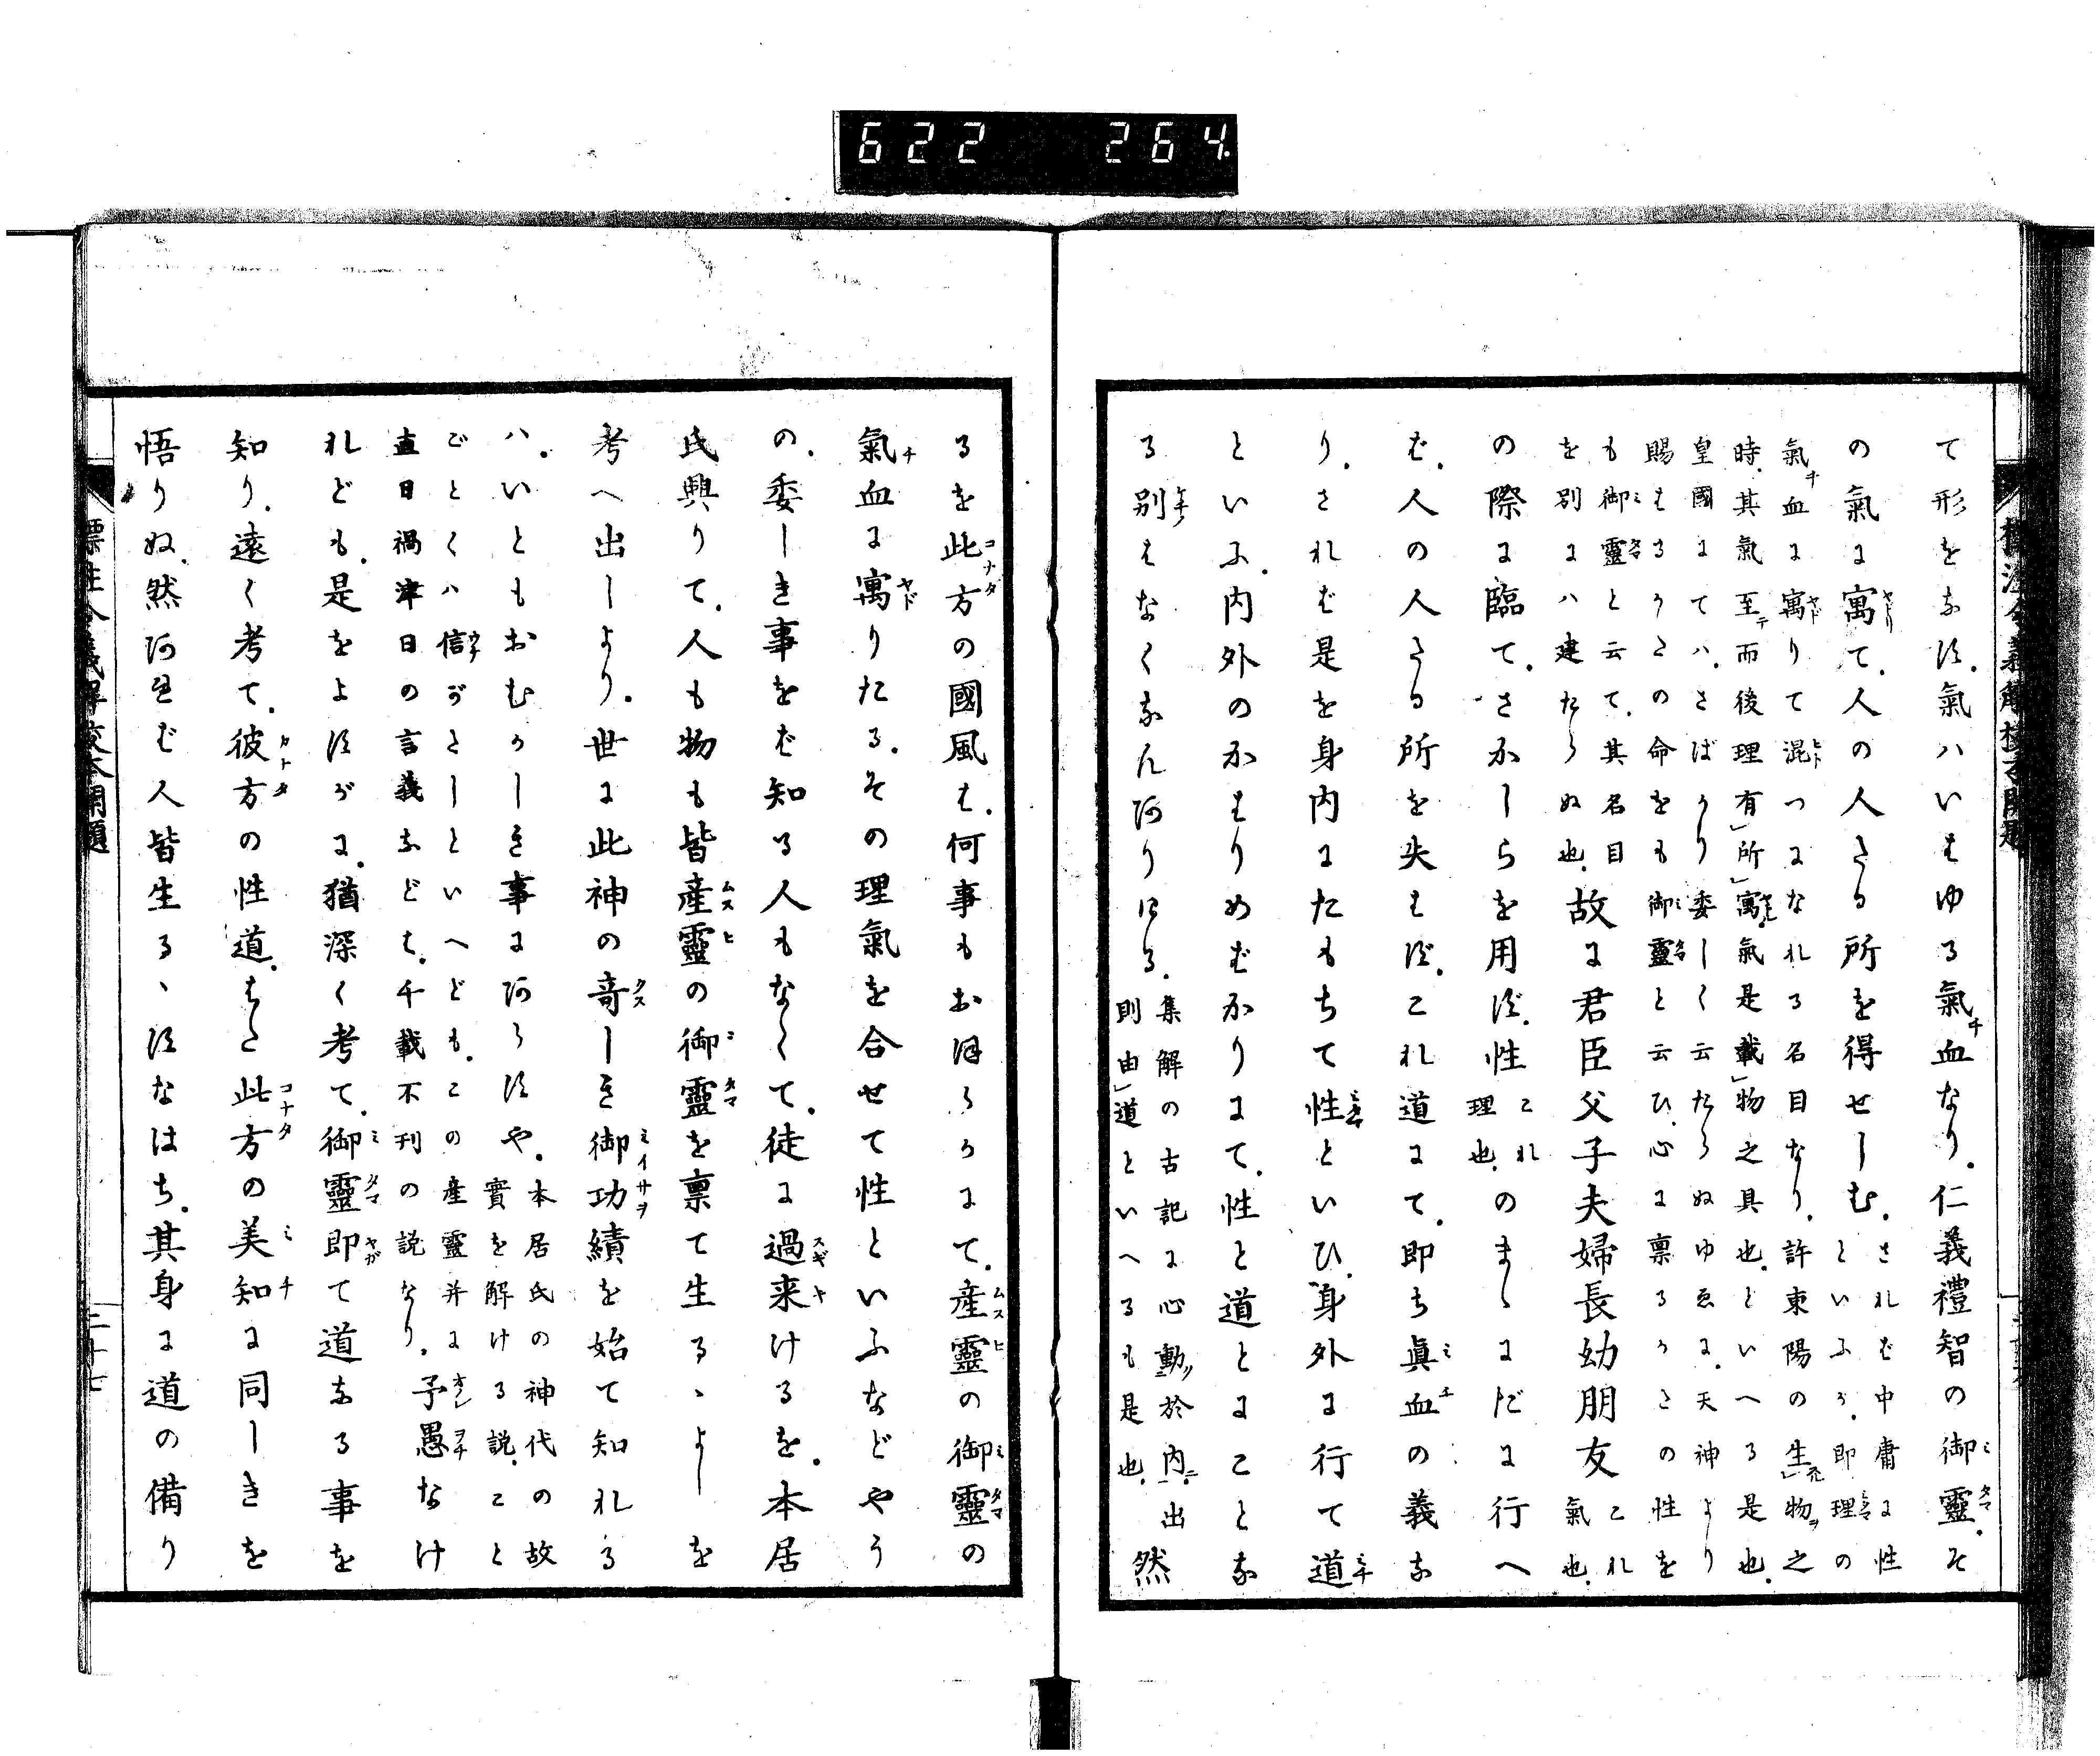 622 264
て形をなす。氣ハいはゆる氣血なり。仁義禮智の御靈。そ
の氣に寓て。人の人たる所を得せしむ。
されば中庸に性
といふが。即理の
氣血に寓りて混つになれる名目なり。許東陽の生物之
時。其氣至而後理有所寓。氣是載物之具也。といへる是也。
皇國にてハ。さばかり委しく云たらぬゆゑに。天神より
賜はるうたの命をも御靈と云ひ。心に禀るうたの性を
も御靈と云て。其名目
を別にハ建たらぬ也。
故に君臣父子夫婦長幼朋友
これ
氣也。
の際に臨て。さかしらを用ず。性
これ
理也。
のまゝにだに行へ
ば。人の人たる所を失はず。これ道にて。即ち眞血の義な
り。されば是を身内にたもちて性といひ。身外に行て道
といふ。内外のかはりめばかりにて。性と道とはことな
る別はなくなん有りける。
集解の古記に心動於内。出
則由道といへるも是也。
然
標注令義解校本開題
るを此方の國風は。何事もおほらかにて。産靈の御靈の
氣血に寓りたる。その理氣を合せて性といふなどやう
の。委しき事をば知る人もなくて。徒に過来けるを。本居
氏興りて。人も物も皆産靈の御靈を禀て生るゝよしを
考へ出しより。世に此神の奇しき御功績を始て知れる
ハ。いともおむかしき事にあらずや。
本居氏の神代の故
實を解ける説。こと
ごとくハ信がたしといへども。この産靈并に
直日禍津日の言義などは。千載不刊の説なり。
予愚なけ
れども。是をよすがに。猶深く考て。御靈即て道なる事を
知り。遠く考て。彼方の性道。はた此方の美知に同しきを
悟りぬ。然あれば人皆生るゝすなはち。其身に道の備り
標注令義解校本開題
二十七